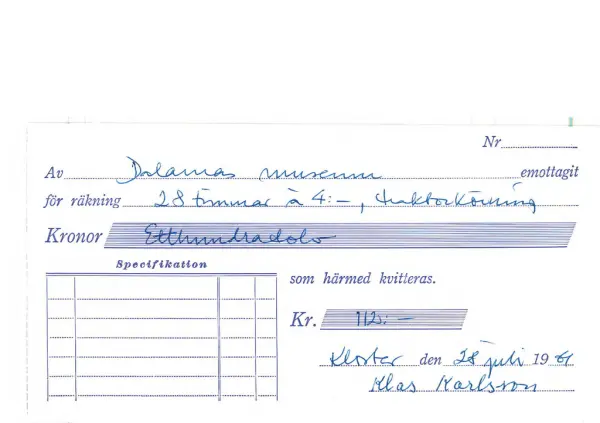 Nr
Av Dalarnas museum emottagit
för räkning 28 timmar à 4:-, traktorkörning
Kronor Etthundratolv
Specifikation
som härmed kvitteras.
Kr. 112:-
Kloster den 28 juli 1961
Klas Karlsson